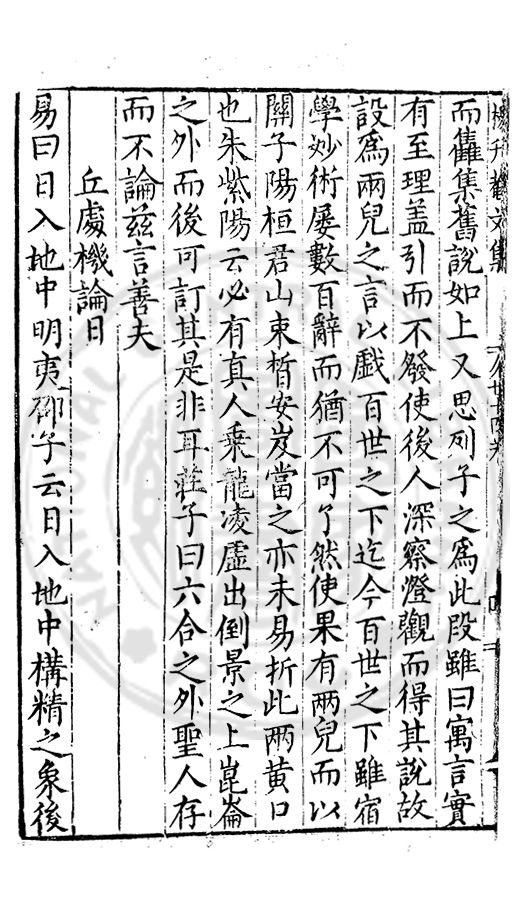 楊升菴文集
而集舊說如上又思列子之爲此段雖曰寓言實
有至理盖引而不發使後人深察燈觀而得其說故
設爲兩兒之言以戲百世之下迄今百世之下雖宿
學妙術屢數百辭而猶不可了然使果有兩兒而以
關子陽桓君山束晳安岌當之亦未易折此兩黄口
也朱紫陽云必有真人乘龍凌虛出倒景之上崑崙
之外而後可訂其是非耳莊子曰六合之外聖人存
而不論兹言善夫
丘處機論日
易曰日入地中明夷邵子云日入地中構精之象後